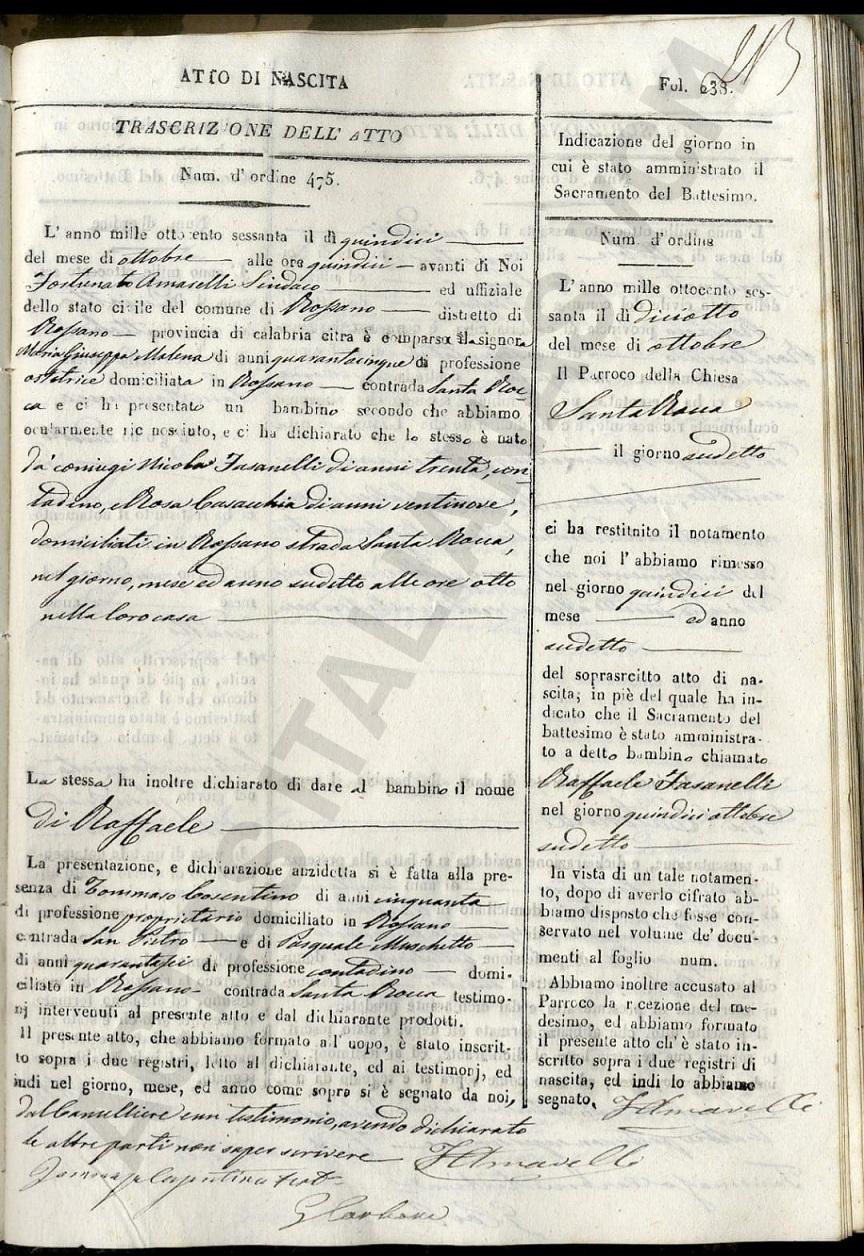 213
ATTO DI NASCITA
Fol. 238.
TRASCRIZ ONE DELL' ATTO
Num. d'ordine 475.
L' anno mille otto ento sessanta il dì quindici
del mese di ottobre alle ore quindici avanti di Noi
Fortunato Amarelli Sindaco ed uffiziale
dello stato ci ile del comune di Rossano distretto di
Rossano provincia di calabria citra è comparsa la signora
Maria Giuseppa Malena di anni quarantacinque di professione
ostetrice domiciliata in Rossano contrada Santa Roc-
ca e ci h presentato un bambino secondo che abbiamo
ocularmente ric nosciuto, e ci ha dichiarato che lo stesso è nato
da' coniugi Nicola Fasanelli di anni trenta, con-
tadino, e Rosa Casacchia di anni ventinove,
domiciliati in Rossano strada Santa Rocca,
nel giorno, mese ed anno sudetto alle ore otto
nella loro casa
La stessa ha inoltre dichiarato di dare al bambino il nome
di Raffaele
La presentazione, e dichiarazione anzidetta si è fatta alla pre-
senza di Tommaso Cosentino di anni cinquanta
di professione proprietario domiciliato in Rossano
contrada San Pietro e di Pasquale Muschetto
di anni quarantasei di professione contadino domi-
ciliato in Rossano contrada Santa Rocca testimo-
nj intervenuti al presente atto e dal dichiarante prodotti.
Il presente atto, che abbiamo formato all' uopo, è stato inscrit-
to sopra i due registri, letto al dichiarante, ed ai testimonj, ed
indi nel giorno, mese, ed anno come sopra si è segnato da noi,
dal Cancelliere e un testimonio, avendo dichiarato
le altre parti non saper scrivere FAmarelli
Indicazione del giorno in
cui è stato amministrato il
Sacramento del Battesimo.
Num. d'ordine
L'anno mille ottocento ses-
santa il dì diciotto
del mese di ottobre
Il Parroco della Chiesa
Santa Rocca
il giorno sudetto
ci ha restituito il notamento
che noi l' abbiamo rimesso
nel giorno quindici del
mese ed anno
sudetto
del soprascritto atto di na-
scita; in piè del quale ha in-
dicato che il Sacramento del
battesimo è stato amministra-
to a detto bambino chiamato
Raffaele Fasanelli
nel giorno quindici ottobre
sudetto
In vista di un tale notamen-
to, dopo di averlo cifrato ab-
biamo disposto che fosse con-
servato nel volume de' docu-
menti al foglio num.
Abbiamo inoltre accusato al
Parroco la ricezione del me-
desimo, ed abbiamo formato
il presente atto ch' è stato in-
scritto sopra i due registri di
nascita, ed indi lo abbiamo
segnato. FAmarelli